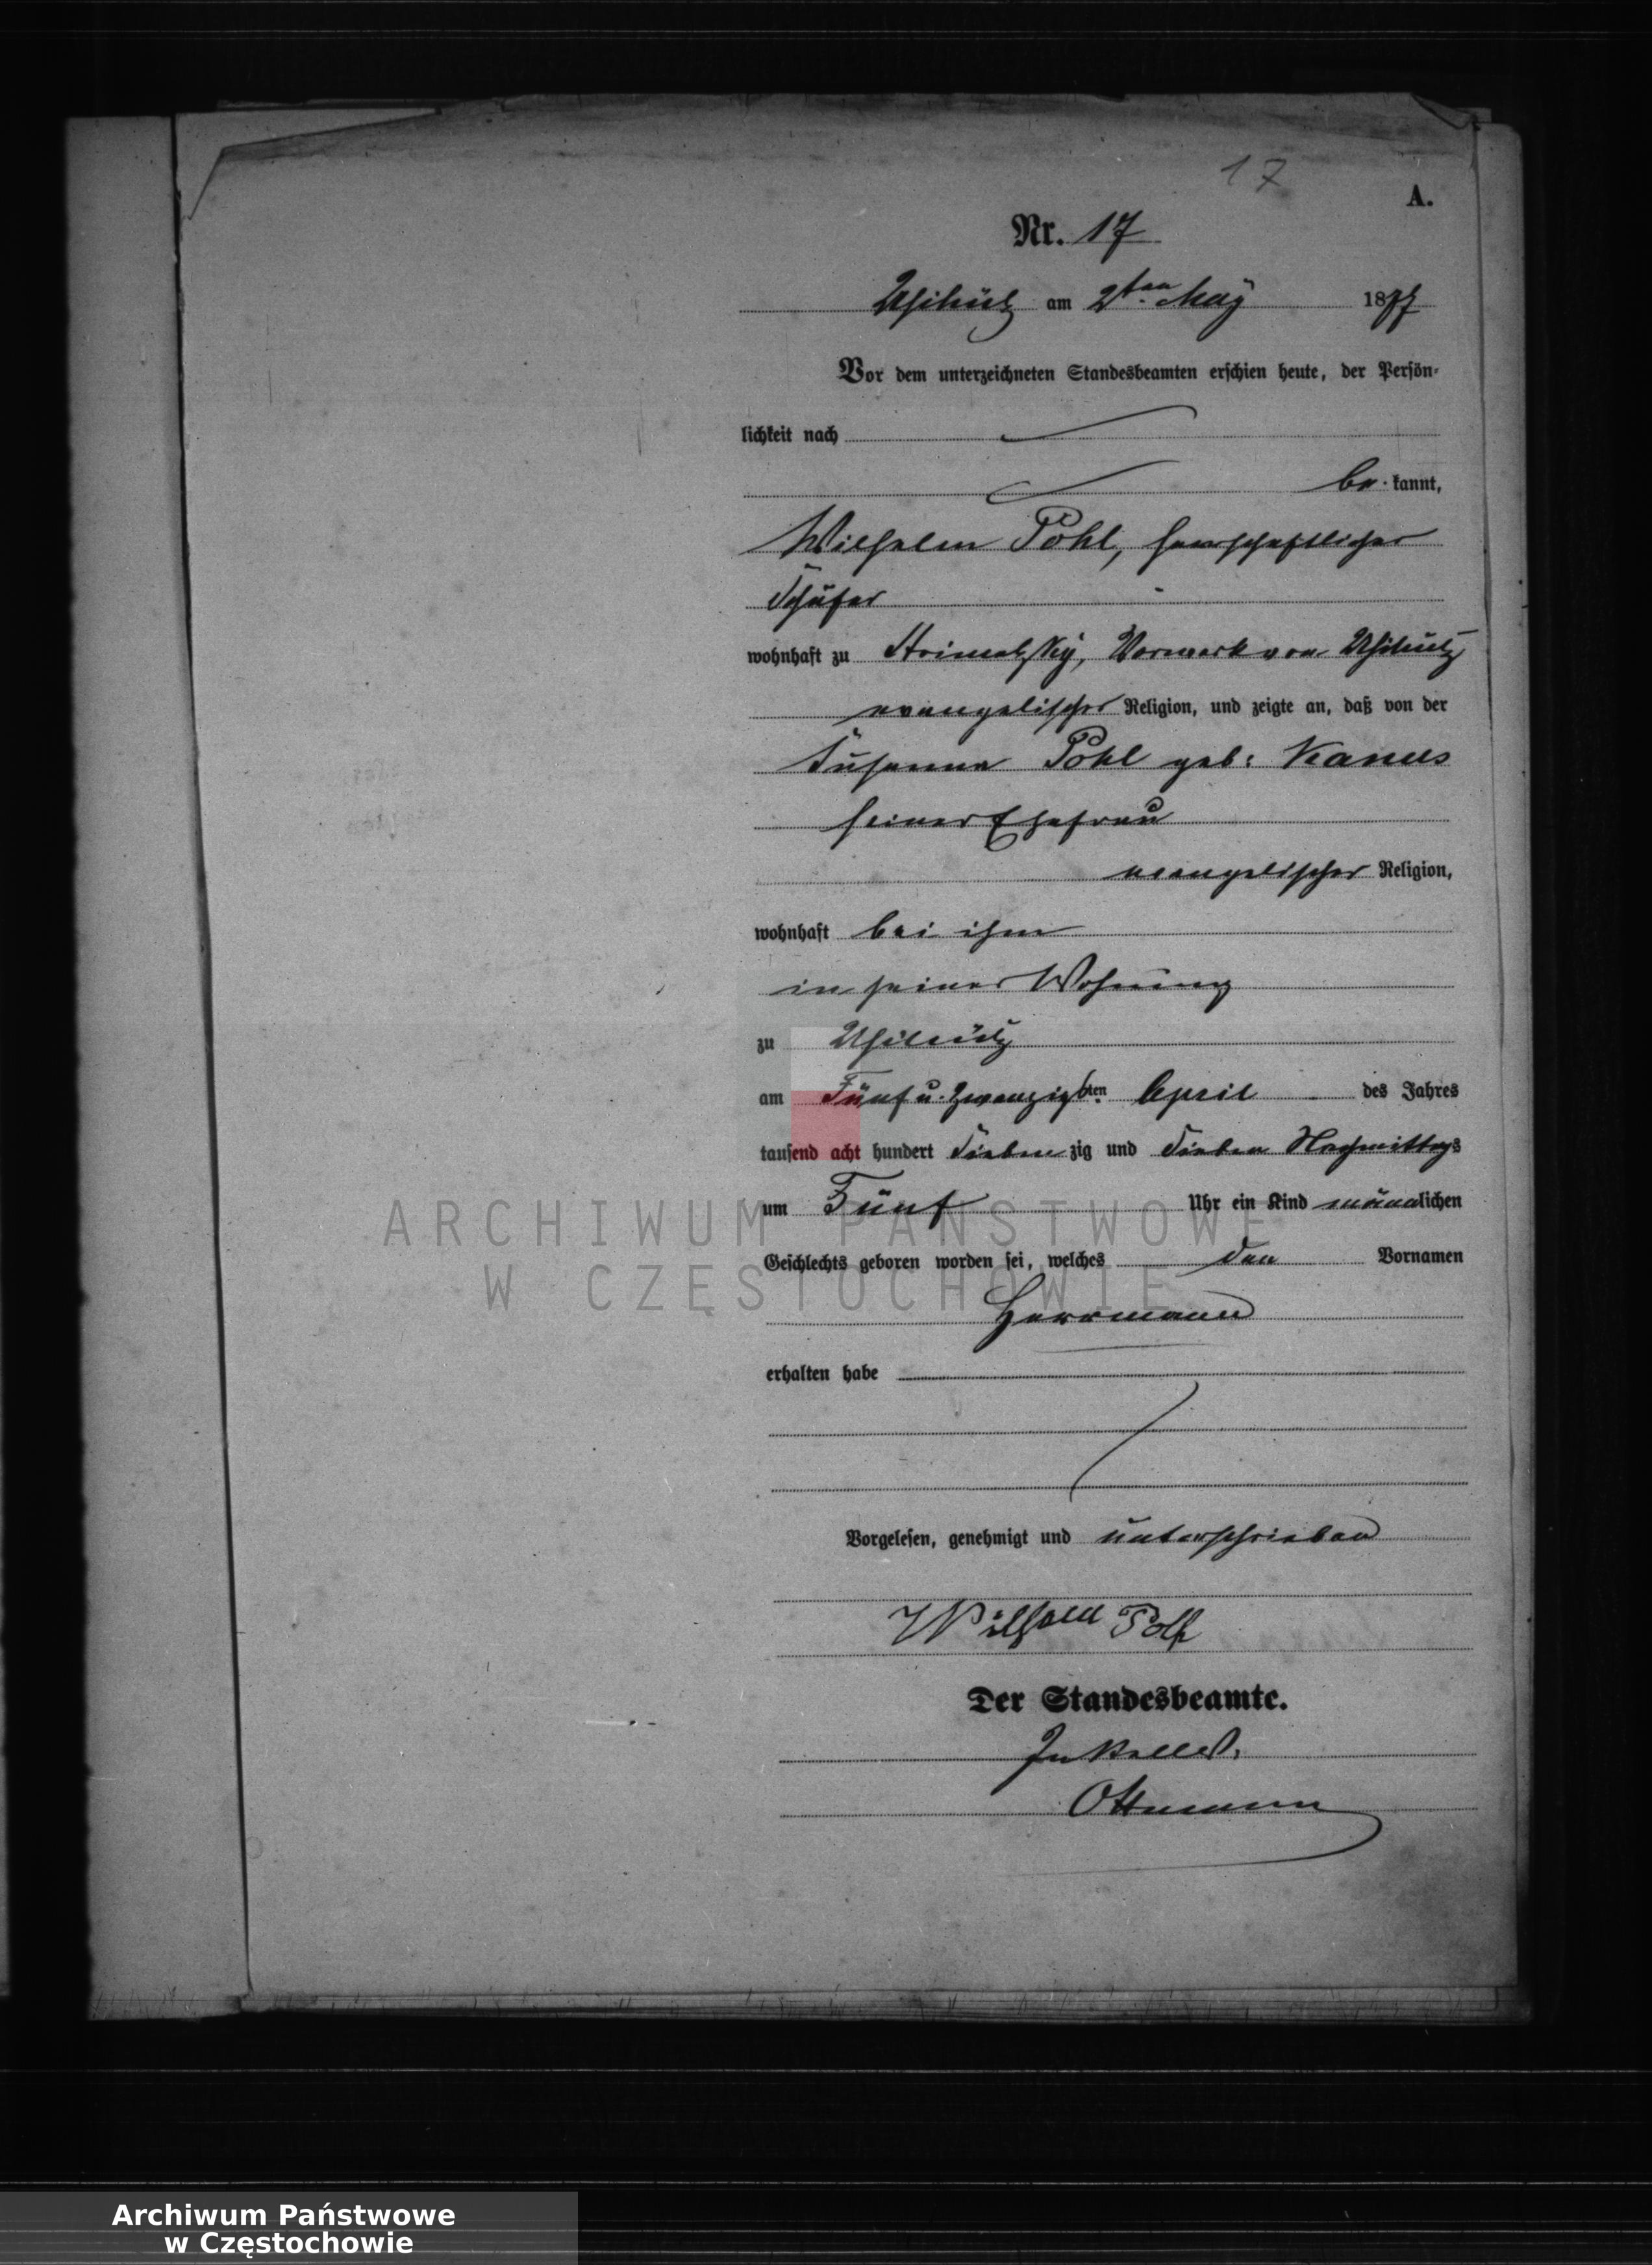 17
A.
Nr. 17
Uschütz am 2ten May 1877
Vor dem unterzeichneten Standesbeamten erschien heute, der Persön-
lichkeit nach
be kannt,
Wilhelm Pohl, herrschaftlicher
Schäfer
wohnhaft zu Vorwerk von Uschütz
evangelischer Religion, und zeigte an, daß von der
Susanna Pohl geb: Kanus
seiner Ehefrau
evangelischer Religion,
wohnhaft bei ihm
in seiner Wohnung
zu Uschütz
am Fünf u. Zwanzigsten April des Jahres
tausend acht hundert Sieben zig und Sieben Nachmittags
um Fünf Uhr ein Kind männlichen
Geschlechts geboren worden sei, welches den Vornamen
Herrmann
erhalten habe
Vorgelesen, genehmigt und unterschrieben
Wilhelm Pohl
Der Standesbeamte.
Ottmann
ARCHIWUM PAŃSTWOWE
W CZĘSTOCHOWIE
Archiwum Państwowe
w Częstochowie